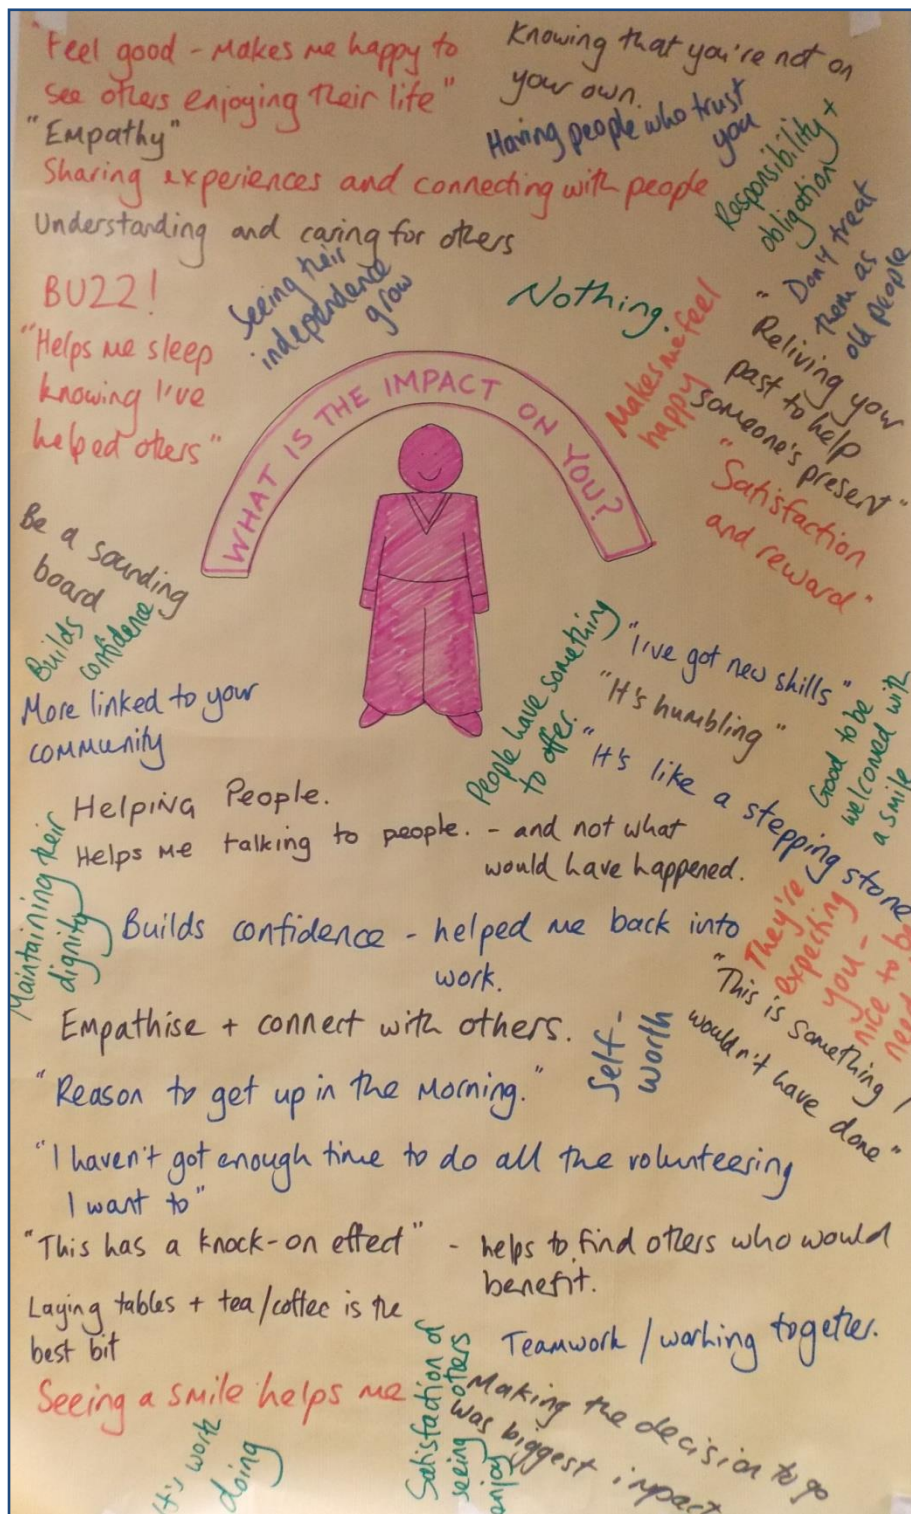 "Feel good - Makes me happy to
see others enjoying their life"
"Empathy"
Knowing that you're not on
your own.
Having people who trust
you
Responsibility +
obligation
Sharing experiences and connecting with people
Understanding and caring for others
Don't treat
them as
old people
BUZZ!
Seeing their
independence
grow
Nothing.
"Helps me sleep
knowing I've
helped others"
Makes me feel
happy
"Reliving your
past to help
someone's present"
"Satisfaction
and reward"
WHAT IS THE IMPACT ON YOU?
Be a sounding
board
Builds
confidence
More linked to your
community
People have something
to offer.
"I've got new skills"
"It's humbling"
"It's like a stepping stone
Good to be
welcomed with
a smile
Helping People.
Helps me talking to people. - and not what
would have happened.
Maintaining their
dignity
Builds confidence - helped me back into
work.
They're
expecting
you -
nice to be
need
"This is something I
wouldn't have done"
Empathise + connect with others.
Self-
worth
"Reason to get up in the morning."
"I haven't got enough time to do all the volunteering
I want to"
"This has a knock-on effect" - helps to find others who would
benefit.
Laying tables + tea/coffee is the
best bit
Teamwork / working together.
Seeing a smile helps me
Satisfaction of
seeing others
enjoy
Making the decision to go
was biggest impact
It's work
doing